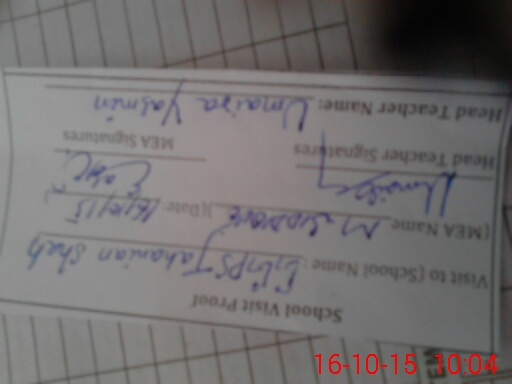 School Visit Proof
Visit to (School Name: GGPS Jahanian Shah
(MEA Name M )(Date: 16/10/15 )
Head Teacher Signatures MEA Signatures
Head Teacher Name: Umaira Yasmin
16-10-15 10:04